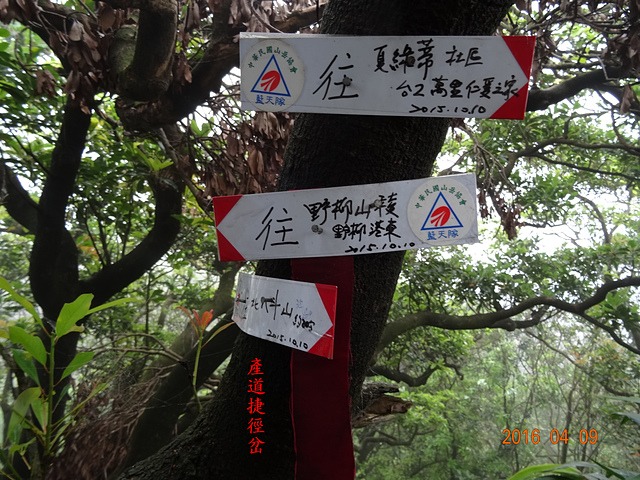 中華民國山岳協會
藍天隊
往
夏綠蒂 社區
台2 萬里仁愛之家
2015.10.10
往
野柳山陵
野柳港東
2015.10.10
中華民國山岳協會
藍天隊
山
2015.10.10
產道捷徑岔
2016 04 09